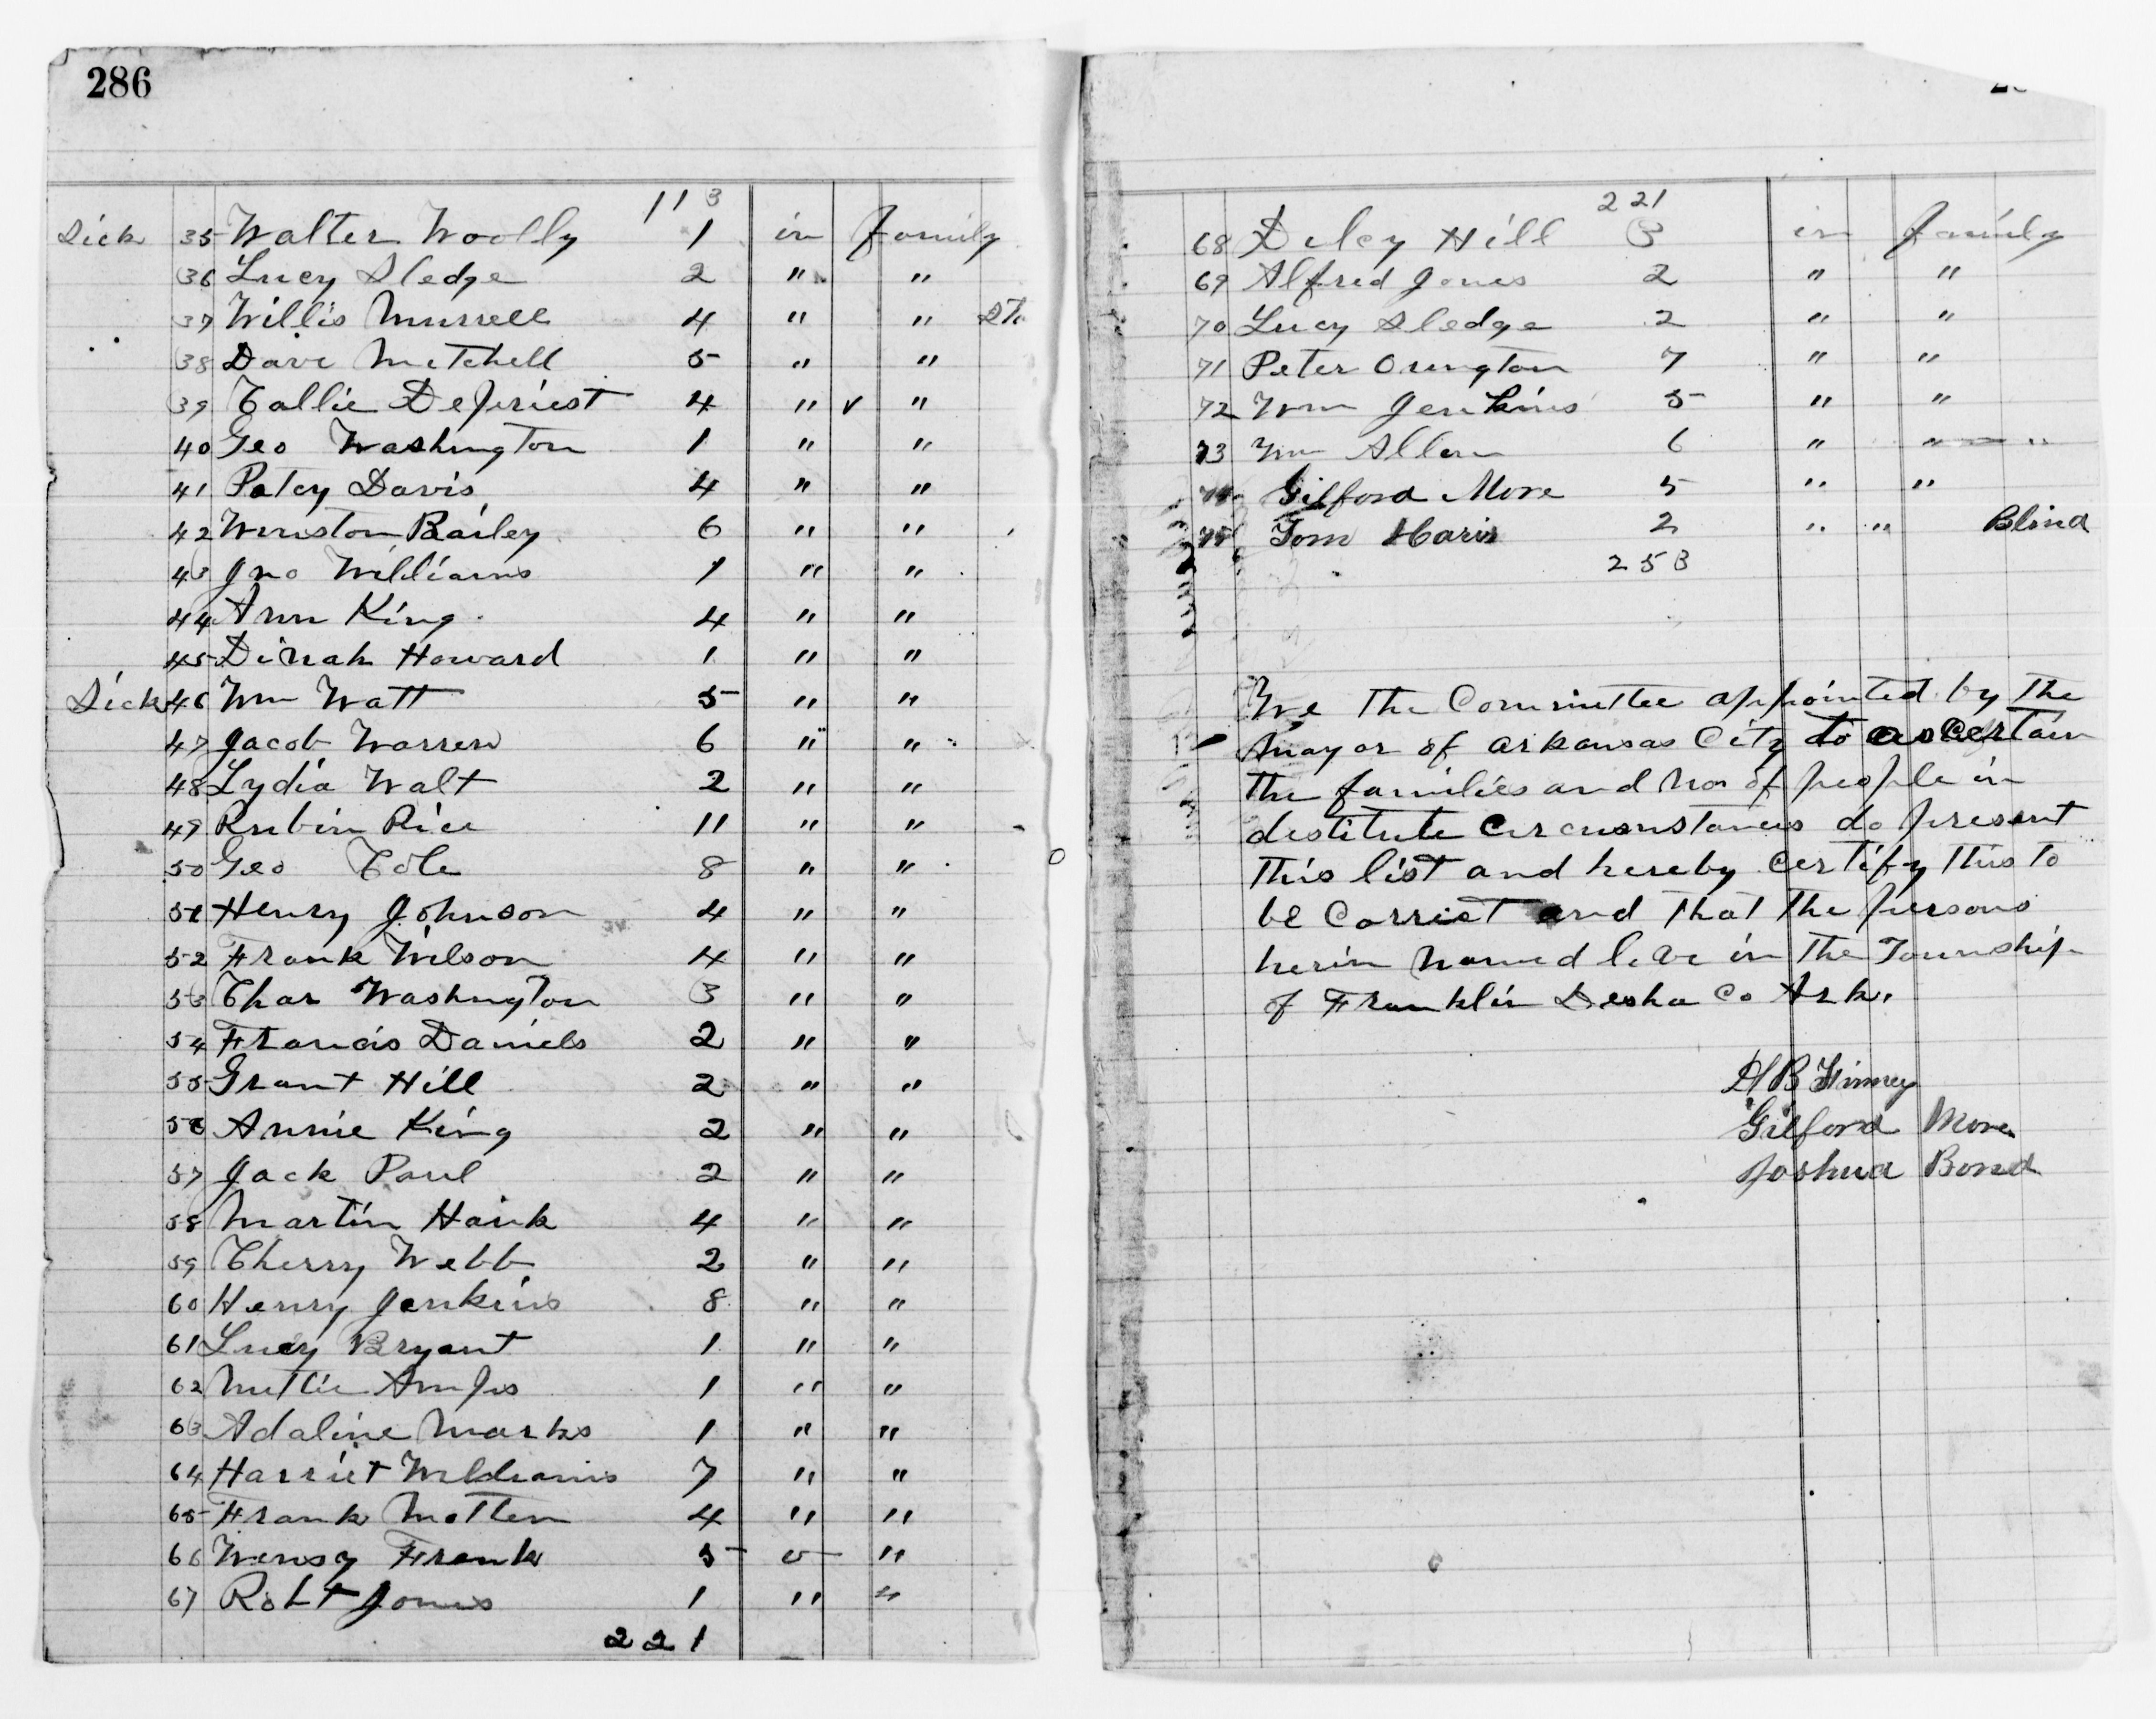 286
113
Sick 35 Walter Woolly 1 in family
36 Lucy Sledge 2 " "
37 Willis Murrell 4 " "
38 Dave Mitchell 5 " "
39 Callie DePriest 4 " v "
40 Geo Washington 1 " "
41 Patcy Davis 4 " "
42 Winston Bailey 6 " "
43 Jno Williams 1 " "
44 Ann King 4 " "
45 Dinah Howard 1 " "
Sick 46 Wm Watt 5 " "
47 Jacob Warren 6 " "
48 Lydia Walt 2 " "
49 Rubin Rice 11 " "
50 Geo Cole 8 " "
51 Henry Johnson 4 " "
52 Frank Wilson 4 " "
53 Chas Washington 3 " "
54 Francis Daniels 2 " "
55 Grant Hill 2 " "
56 Annie King 2 " "
57 Jack Paul 2 " "
58 Martin Hank 4 " "
59 Cherry Webb 2 " "
60 Henry Jenkins 8 " "
61 Lucy Bryant 1 " "
62 1 " "
63 Adaline Marks 1 " "
64 Harriet Williams 7 " "
65 Frank Motten 4 " "
66 Frank 5 " "
67 Robt Jones 1 " "
221
221
68 Dilcy Hill 3 in family
69 Alfred Jones 2 " "
70 Lucy Sledge 2 " "
71 Peter Orington 7 " "
72 Wm Jenkins 5 " "
73 Wm Allen 6 " "
74 Gilford More 5 " "
75 Tom Haris 2 " " Blind
253
We the Committee appointed by the
mayor of Arkansas City to ascertain
the families and no of people in
destitute circumstances do present
this list and hereby certify this to
be correct and that the persons
herin named live in the Township
of Franklin Desha Co Ark.
H B Finney
Gilford More
Joshua Bond